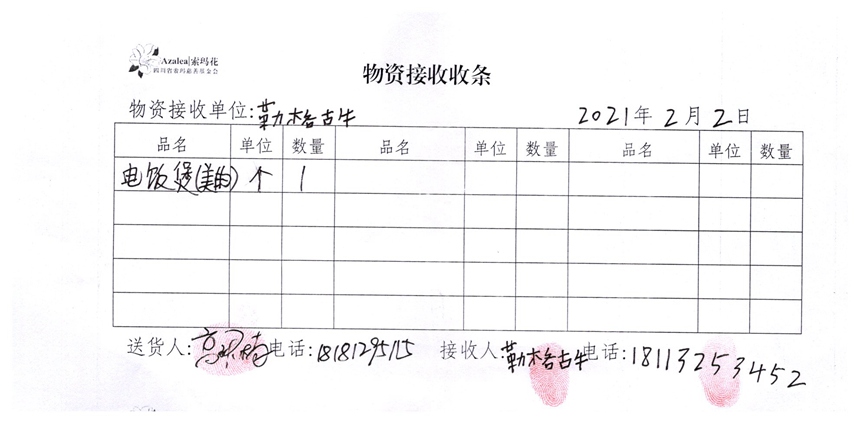 Azalea|索玛花
四川省索玛慈善基金会
物资接收收条
物资接收单位:勒格古牛 2021年2月2日
品名 单位 数量 品名 单位 数量 品名 单位 数量
电饭煲(美的) 个 1
送货人: 电话:18181295115 接收人:勒格古牛 电话:18113253452